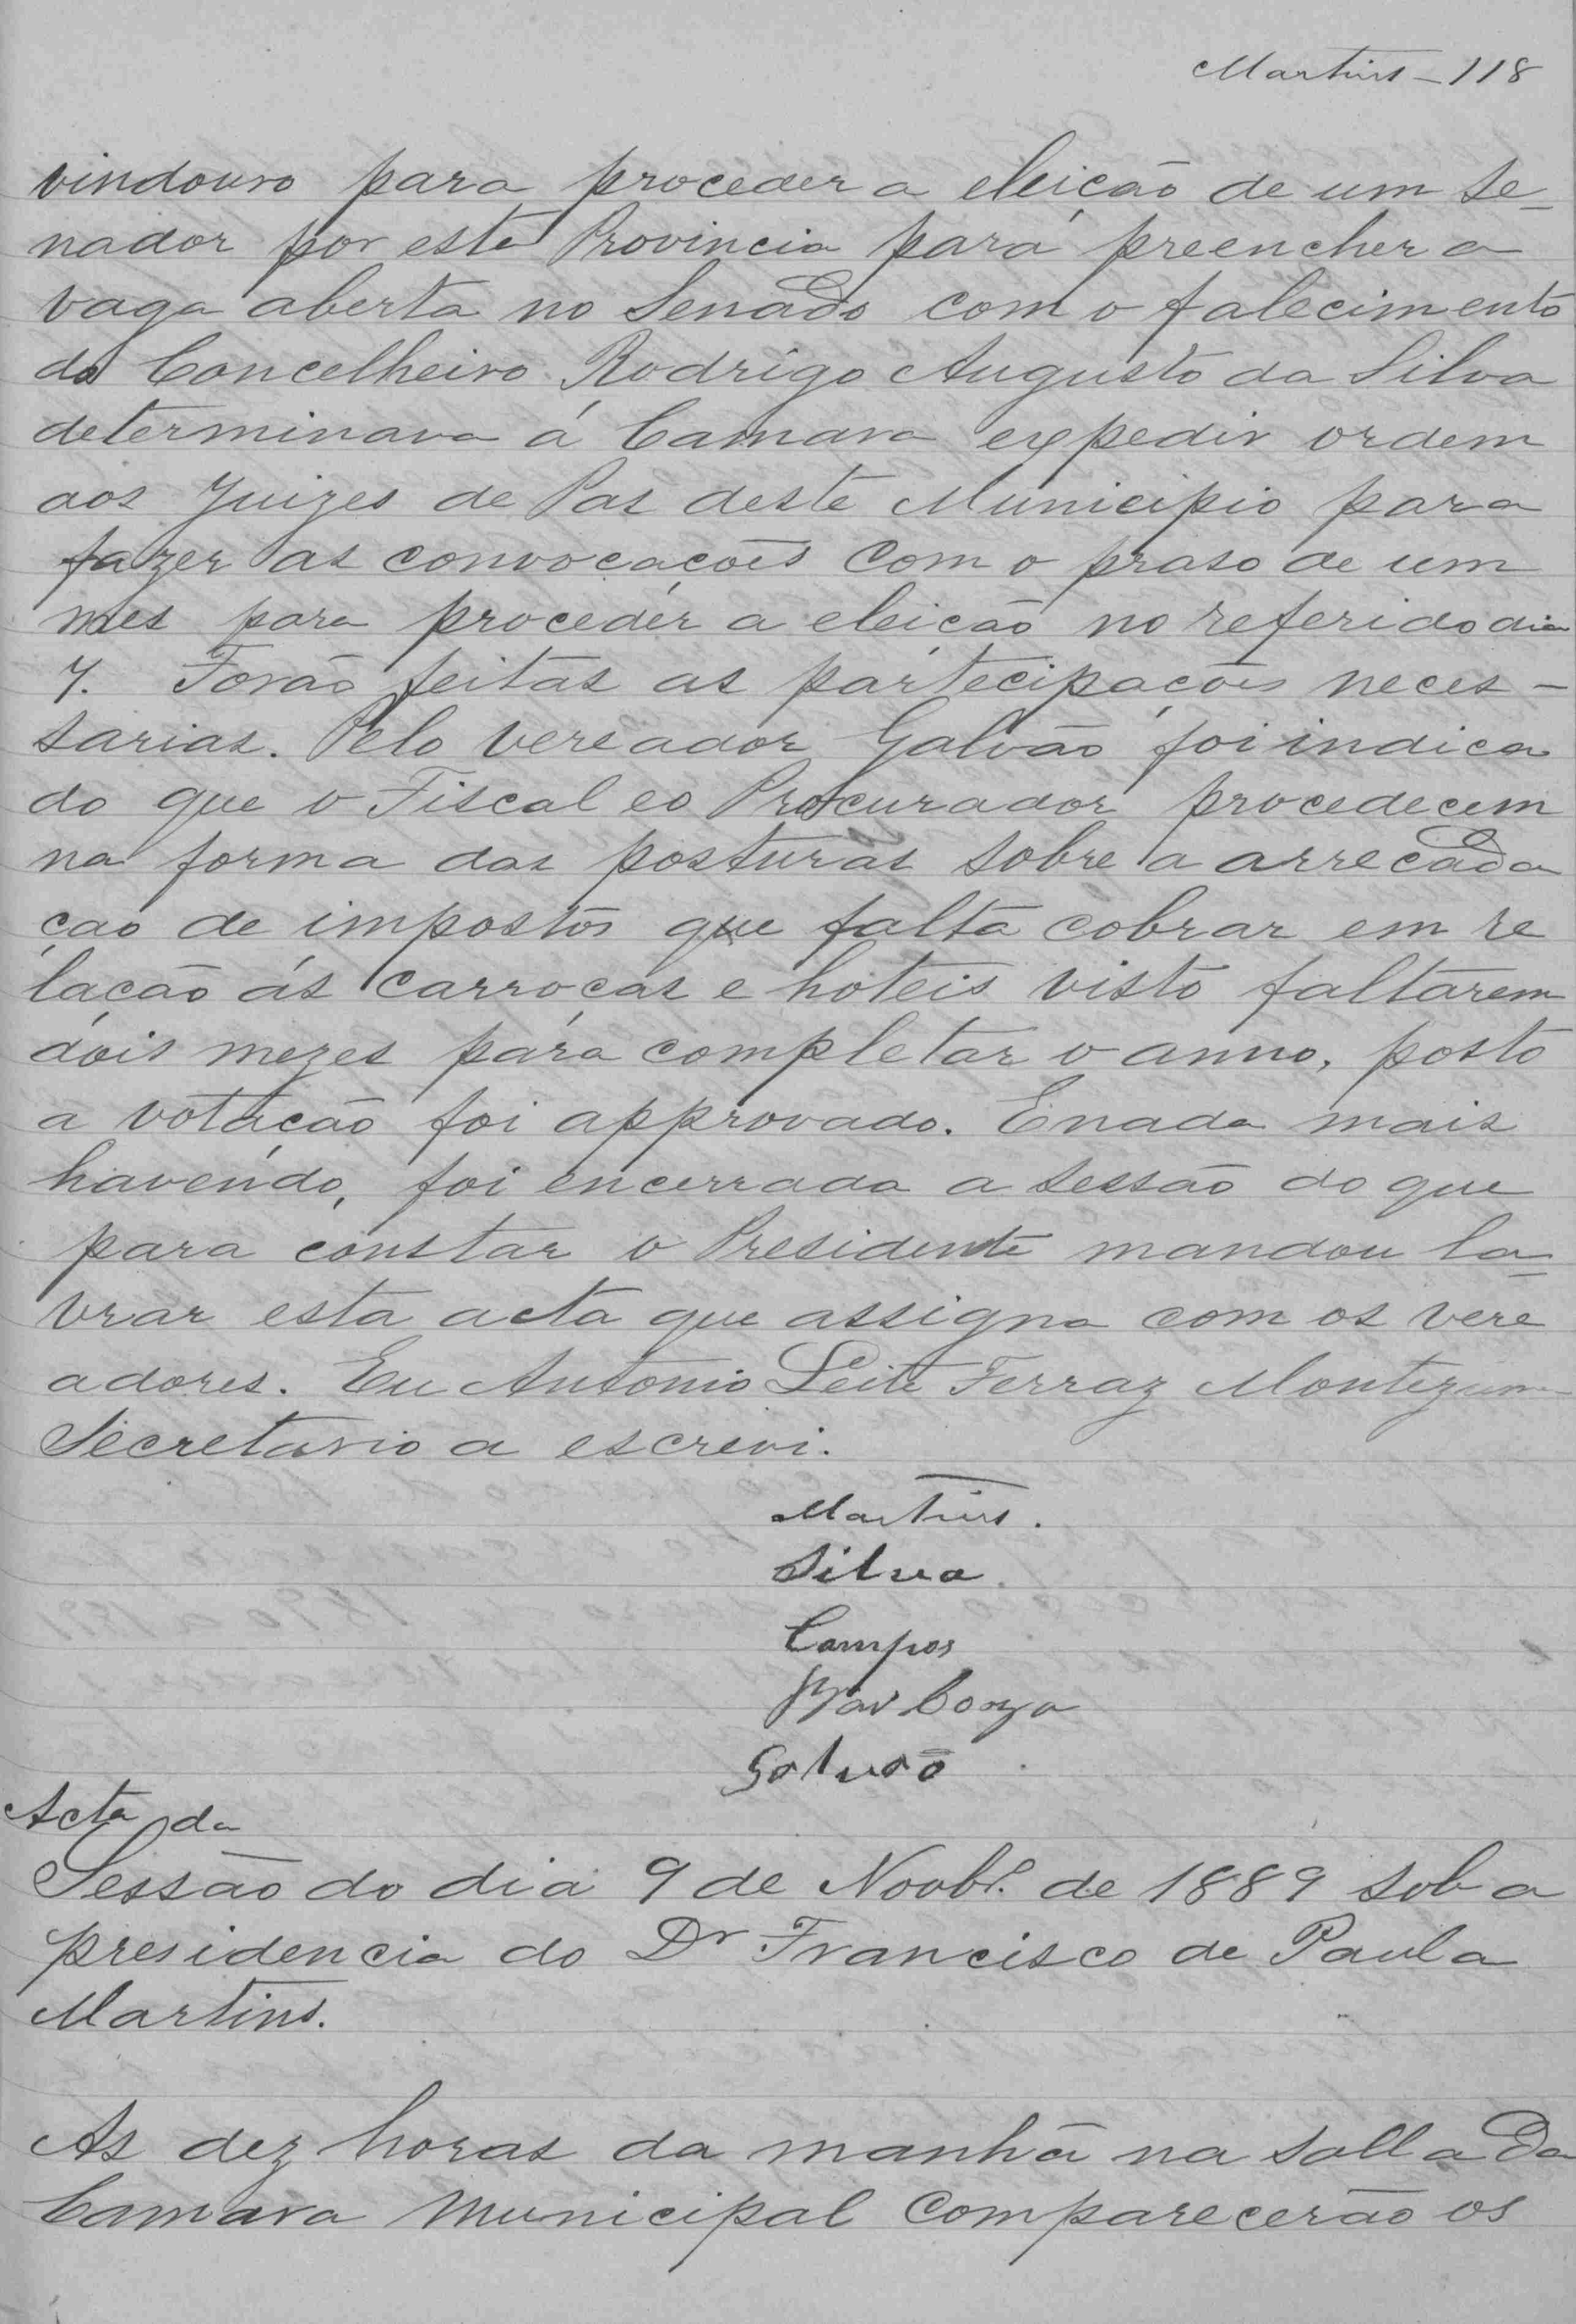 Martins - 118
vindouro para proceder a eleição de um se-
nador por esta Provincia para preencher a
vaga aberta no Senado com o falecimento
do Concelheiro Rodrigo Augusto da Silva
determinava á Camara expedir ordem
aos Juizes de Pas deste Municipio para
fazer as convocações com o praso de um
mes para proceder a eleição no referido dia
7. Forão feitas as partecipações neces-
sarias. Pelo vereador Galvão foi indica
do que o Fiscal e o Procurador procedecem
na forma das posturas sobre a arrecada
ção de impostos que falta cobrar em re
lação ás carroças e hoteis visto faltarem
dois mezes para completar o anno, posto
a votação foi approvado. E nada mais
havendo, foi encerrada a sessão do que
para constar o Presidente mandou la-
vrar esta acta que assigna com os vere
adores. Eu Antonio Leite Ferraz Montezuma
Secretario a escrevi.
Martins.
Silva.
Campos
Barboza
Galvão
Acta da
Sessão do dia 9 de Novbr.º de 1889 sob a
presidencia do Dr Francisco de Paula
Martins.
As dez horas da manhã na salla da
Camara Municipal comparecerão os